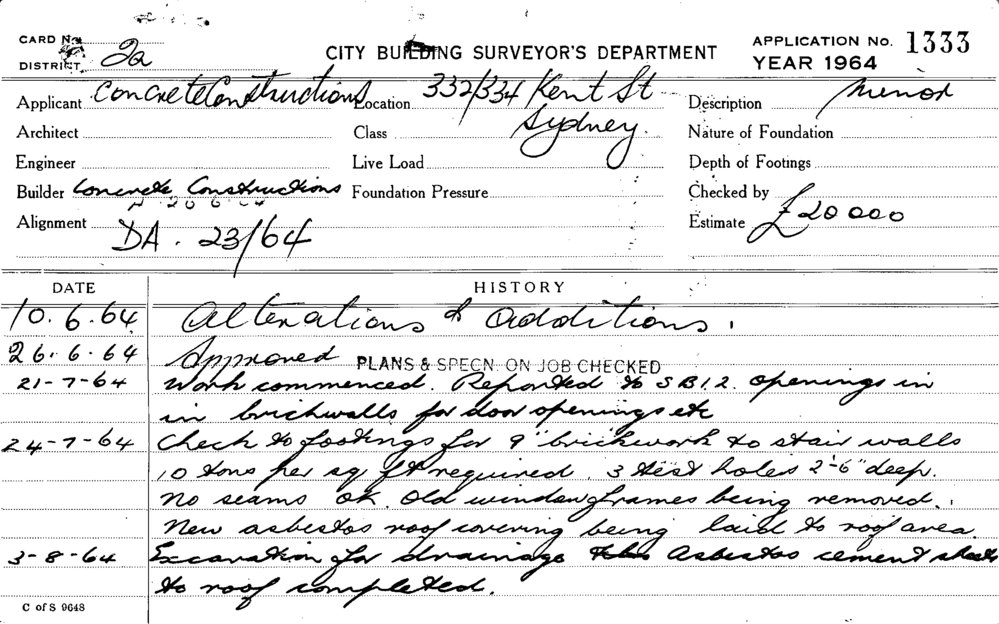 CARD No.
DISTRICT 2a
CITY BUILDING SURVEYOR'S DEPARTMENT
APPLICATION No. 1333
YEAR 1964
Applicant Concrete Constructions Location 332/334 Kent St Description Minor
Architect Class Sydney. Nature of Foundation
Engineer Live Load Depth of Footings
Builder Concrete Constructions Foundation Pressure Checked by
Alignment DA. 23/64 Estimate £20000
DATE HISTORY
10.6.64 Alterations & Additions.
26.6.64 Approved PLANS & SPECN. ON JOB CHECKED
21-7-64 Work commenced. Reported to SB12. openings in
in brickwalls for door openings etc
24-7-64 Check to footings for 9" brickwork to stair walls
10 tons per sq ft required. 3 test holes 2'-6" deep.
No seams OK. Old window frames being removed.
New asbestos roof covering being laid to roof area.
3-8-64 Excavation for drainage asbestos cement sheets
to roof completed.
C of S 9648